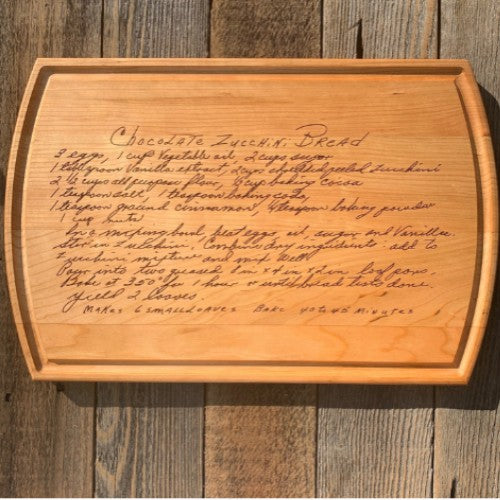 Chocolate Zucchini Bread
3 eggs, 1 cup vegetable oil, 2 cups sugar
1 tablespoon vanilla extract, 2 cups shredded peeled zucchini
2 ½ cups all purpose flour, ½ cup baking cocoa
1 teaspoon salt, 1 teaspoon baking soda,
1 teaspoon ground cinnamon, teaspoon baking powder
1 cup nuts
In a mixing bowl, beat eggs, oil, sugar and vanilla.
Stir in zucchini. Combine dry ingredients: add to
zucchini mixture and mix well.
Pour into two greased in x 4 in x 2 in loaf pans.
Bake at 350° for 1 hour or until bread tests done.
yield 2 loaves.
Makes 6 small loaves Bake 40 to 45 minutes